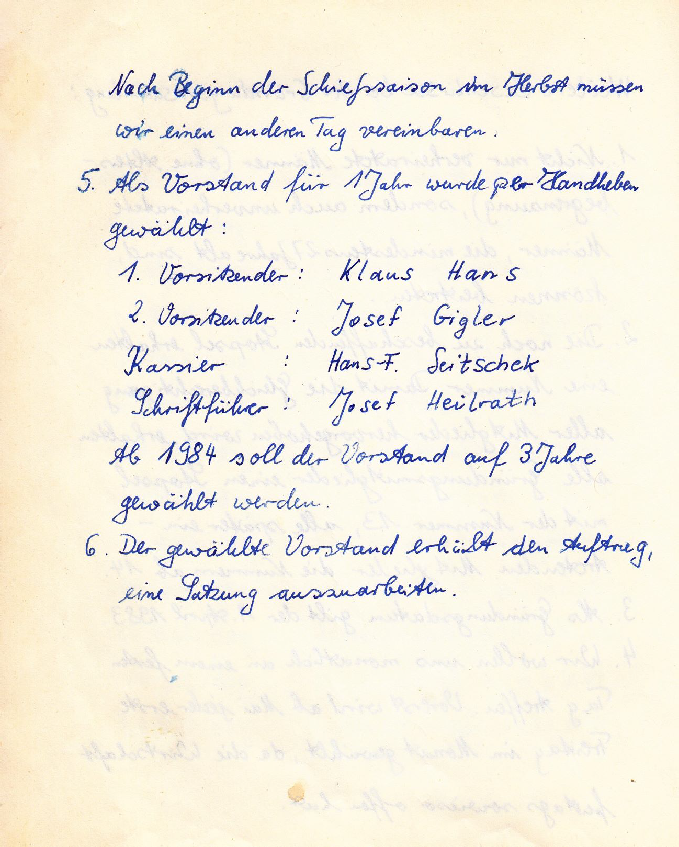 Nach Beginn der Schießsaison im Herbst müssen
wir einen anderen Tag vereinbaren.
5. Als Vorstand für 1 Jahr wurde per Handheben
gewählt:
1. Vorsitzender: Klaus Hans
2. Vorsitzender : Josef Gigler
Kassier : Hans-F. Seitschek
Schriftführer : Josef Heilrath
Ab 1984 soll der Vorstand auf 3 Jahre
gewählt werden.
6. Der gewählte Vorstand erhält den Auftrag,
eine Satzung auszuarbeiten.